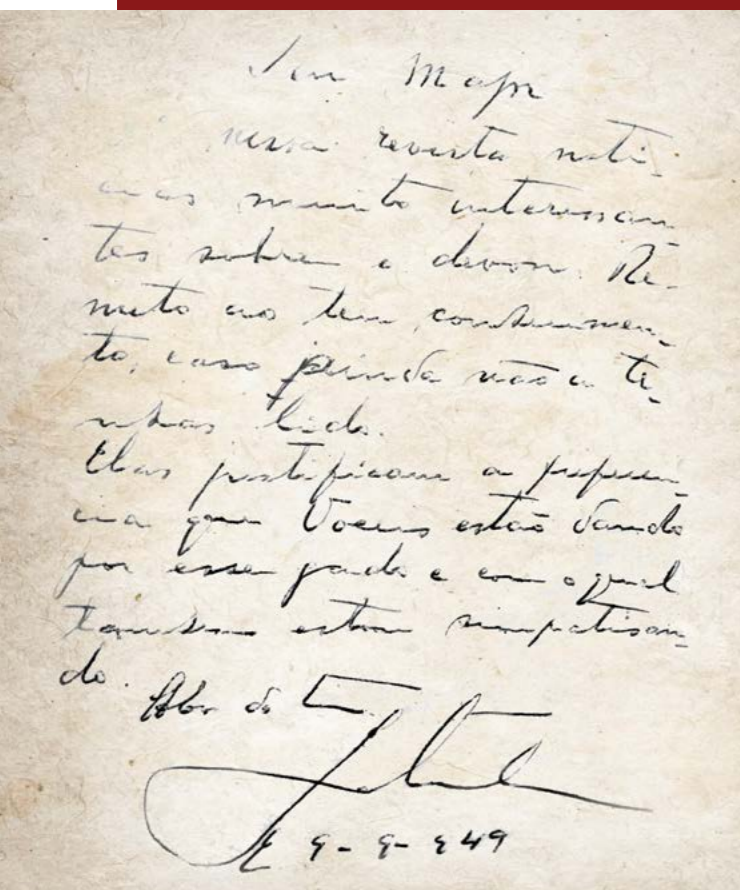 Seu Major
nessa revista noti-
cias muito interessan
tes sobre o devon. Re-
meto ao teu conhecimen-
to, caso ainda não a te-
nhas lido.
Elas justificam a preferen-
cia que Voceis estão dando
por esse gado e com o qual
tambem estou simpatisan-
do.
Abr. do
9-9-949